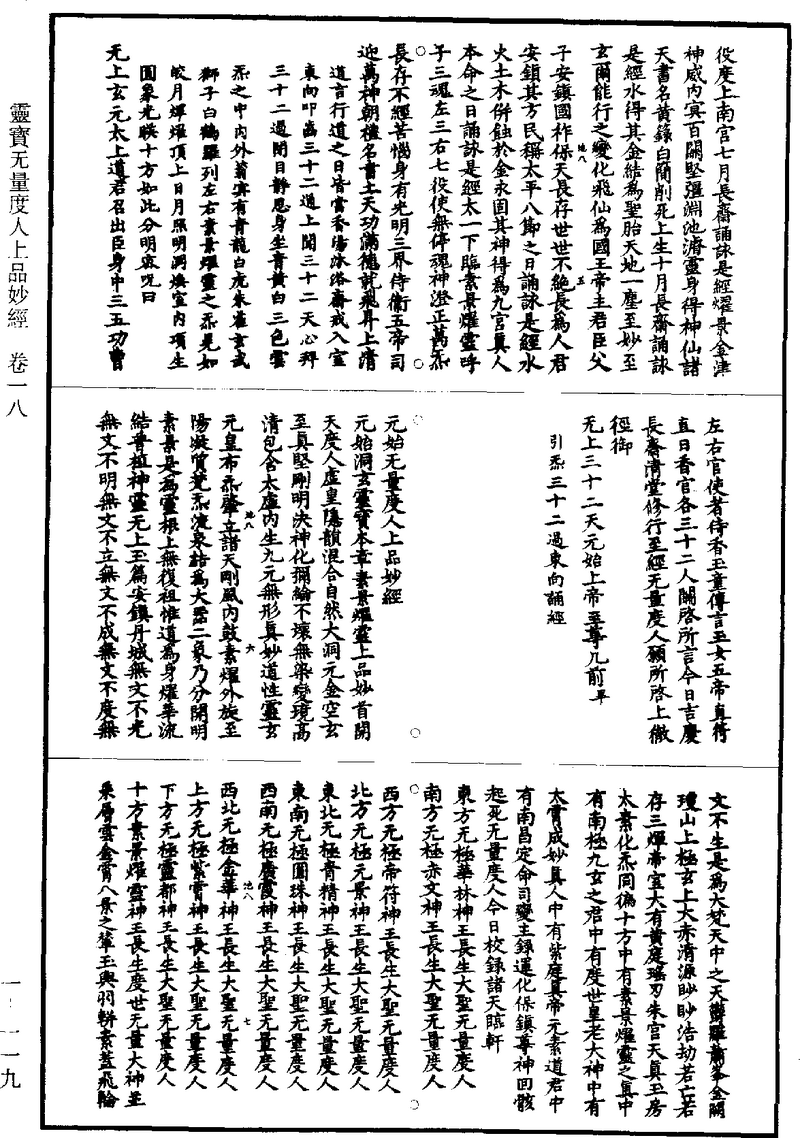 役度上南宫七月長齋誦詠是經燿景金津
神威內寞百關堅彊淵池濟靈身得神仙諸
天書名黃籙白簡削死上生十月長齋誦詠
是經水得其金結為聖胎天地一塵至妙至
玄爾能行之變化飛仙為國王帝主君臣父
子安鎮國祚保天長存世世不絕長為人君
安鎮其方民稱太平八節之日誦詠是經水
火土木併蝕於金永固其神得為九宮真人
本命之日誦詠是經太一下臨素景燿靈呼
子三魂左三右七役使無停魂神澄正萬炁
長存不經苦惱身有光明三界侍衛五帝司
迎萬神朝禮名書上天功滿德就飛昇上清
道言行道之日皆當香湯沐浴齋戒入室
東向叩齒三十二通上聞三十二天心拜
三十二過閉目靜思身坐青黃白三色雲
炁之中內外蓊冥有青龍白虎朱雀玄武
獅子白鶴羅列左右素景燿靈之炁晃如
皎月煇燿頂上日月照明洞煥室內項生
圓象光映十方如此分明密呪曰
无上玄元太上道君召出臣身中三五功曹
左右官使者侍香玉童傳言玉女五帝直符
直日香官各三十二人關啓所言今日吉慶
長齋清堂修行至經无量度人願所啓上徹
徑御
无上三十二天元始上帝至尊几前畢
引炁三十二過東向誦經
元始无量度人上品妙經
元始洞玄靈寶本章素景燿靈上品妙首開
天度人虛皇隱韻混合自然大洞元金空玄
至真堅剛明決神化彌綸不壞無染變現高
清包含太虛內生九元無形真妙道性靈玄
元皇布炁肇立諸天剛風內鼓素燿外旋至
陽凝質梵炁凌泉結為大器二象乃分開明
素景是為靈根上無復祖惟道為身燿華流
結普植神靈无上玉篇安鎮丹城無文不光
無文不明無文不立無文不成無文不度無
文不生是為大梵天中之天鬱羅蕭峯金闕
瓊山上極玄上大赤清源眇眇浩劫若亡若
存三煇帝室大有黃庭瑤刃朱宮天真玉房
太素化炁同徧十方中有素景燿靈之真中
有南極九玄之君中有度世皇老大神中有
太霄成妙真人中有紫庭真帝元素道君中
有南昌定命司變主錄運化保鎮尊神回骸
起死无量度人今日校錄諸天臨軒
東方无極華林神王長生大聖无量度人
南方无極赤文神王長生大聖无量度人
西方无極帝符神王長生大聖无量度人
北方无極元景神王長生大聖无量度人
東北无極青精神王長生大聖无量度人
東南无極圓珠神王長生大聖无量度人
西南无極廣霞神王長生大聖无量度人
西北无極金華神王長生大聖无量度人
上方无極紫霄神王長生大聖无量度人
下方无極靈都神王長生大聖无量度人
十方素景燿靈神王長生度世无量大神並
乘層雲金霄八景之輦玉輿羽軿素蓋飛輪
靈寶无量度人上品妙經　卷一八
一：一一九